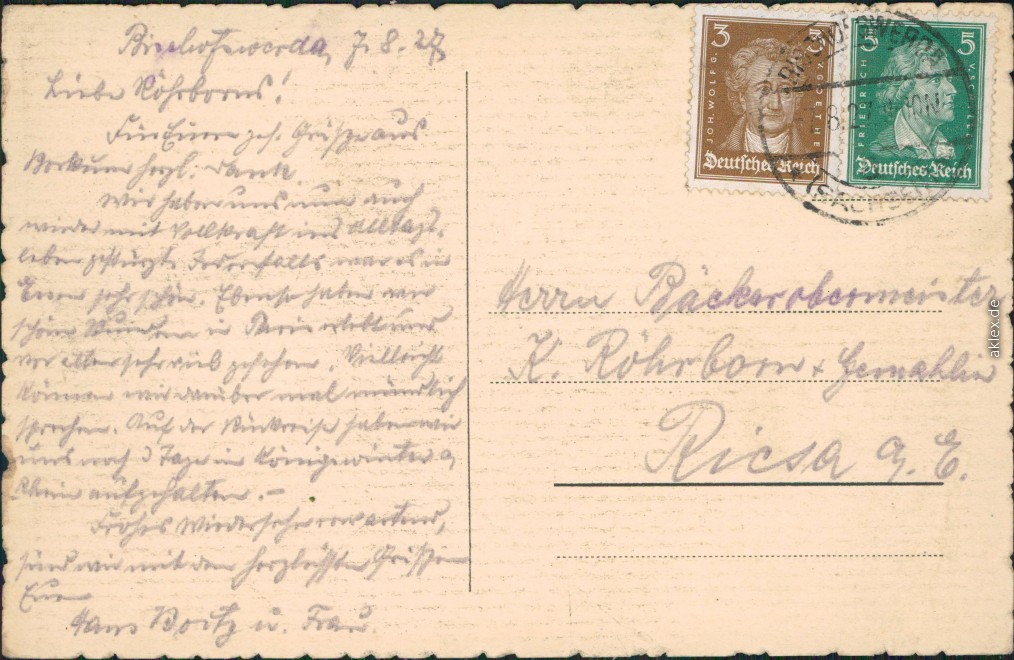 Bischofswerda, 7.8.27
Liebe Röhrborns!
Für Euren Grüße aus
Borkum herzl. Dank.
Wir haben uns nun auch
wieder mit Vollkraft ins Alltags-
leben gestürzt. Jedenfalls war es in
sehr schön. Ebenso haben wir
schöne Stunden in erlebt und
vor allem sehr viel gesehen. Vielleicht
können wir darüber mal mündlich
sprechen. Auf der Rückreise haben wir
uns noch 3 Tage in Königswinter a.
Rhein aufgehalten.-
Frohes Wiedersehn erwartend,
sind wir mit den herzlichsten Grüßen
Eure
Hans u. Frau.
3 3
JOH. WOLFG. V. GOETHE
Deutsches Reich
5 5
FRIEDRICH V. SCHILLER
Deutsches Reich
BISCHOFSWERDA
(SACHSEN)
Herrn Bäckerobermeister
K. Röhrborn + Gemahlin
Riesa a. E.
aklex.de